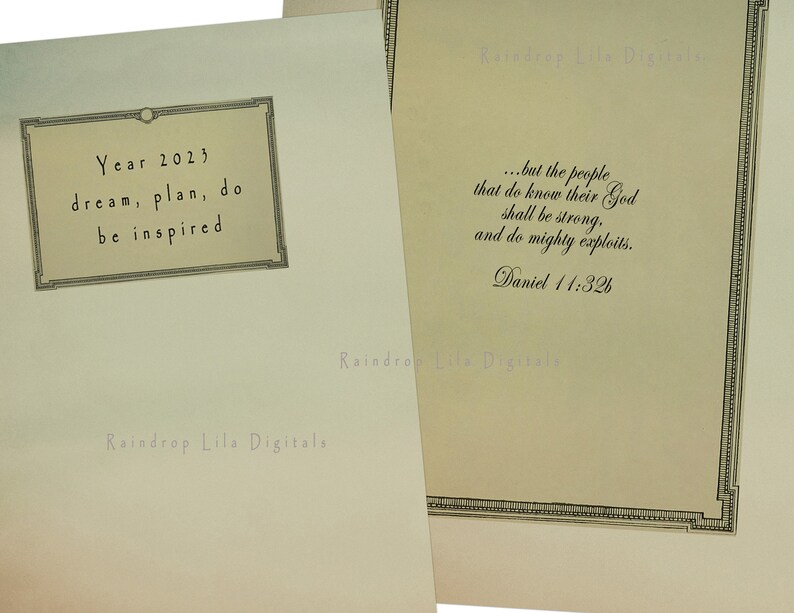 Year 2023
dream, plan, do
be inspired
Raindrop Lila Digitals
...but the people
that do know their God
shall be strong,
and do mighty exploits.
Daniel 11:32b
Raindrop Lila Digitals
Raindrop Lila Digitals